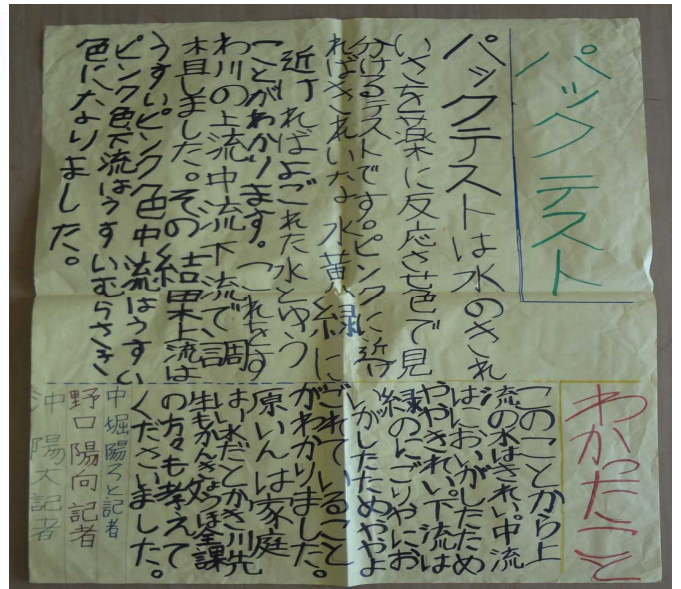 パックテスト
パックテストは水のきれ
いさを薬に反応させ色で見
分けるテストです。ピンクに近け
ればきれいな水黄緑に
近ければよごれた水とゆう
ことがわかります。これをす
わ川の上流中流下流で、調
査しました。その結果上流は
うすいピンク色中流はうすい
ピンク色下流はうすいむらさき
色になりました。
わかったこと
このことから上
流の水はきれい。中流
はにおいがしたため
ややきれい。下流は
緑のにごりやにお
いがしたためややよ
ごれていること
がわかりました。
原いんは家庭
はい水だとかさ川先
生もかんきょうほ全課
の方々も考えて
くださいました。
中堀陽ろと記者
野口陽向記者
沖陽大記者